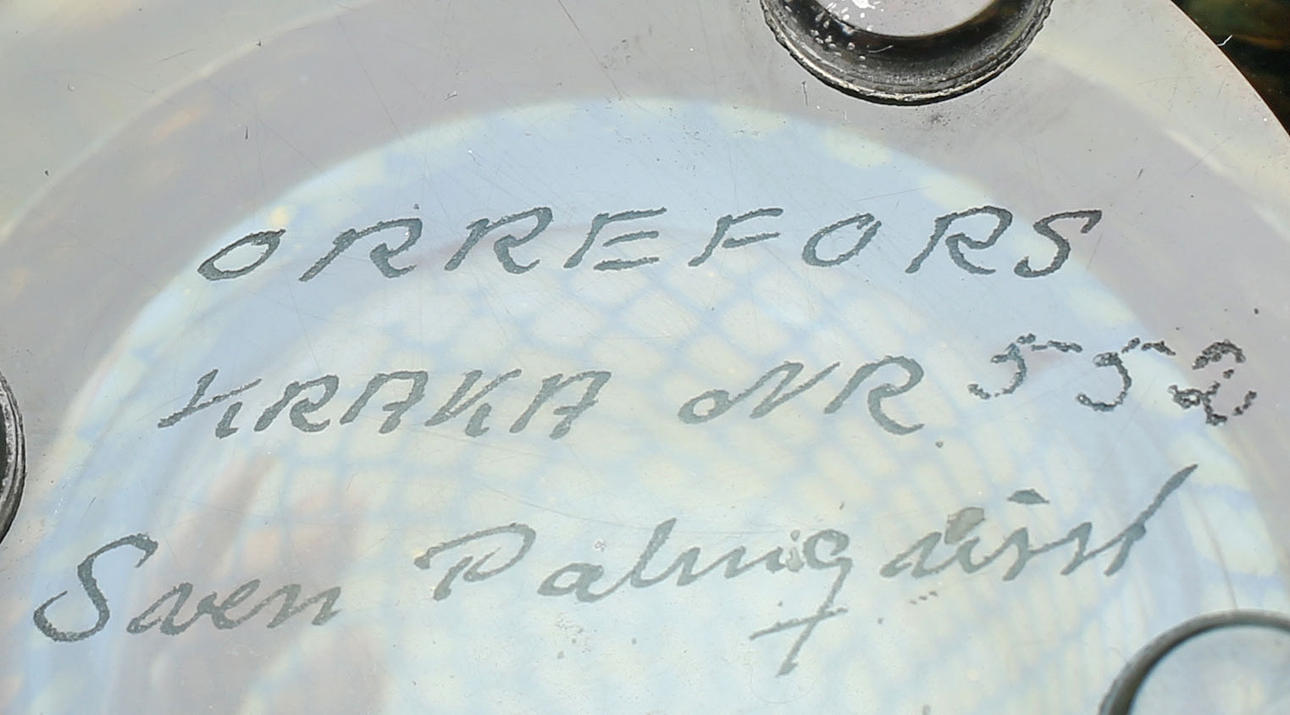 ORREFORS
KRAKA NR 552
Sven Palmqvist